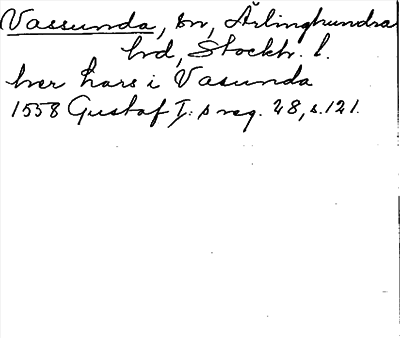 Vassunda, sn, Ärlinghundra
hd, Stockh. l.
her Lars i Vasunda
1558 Gustaf I:s reg. 28, s. 121.